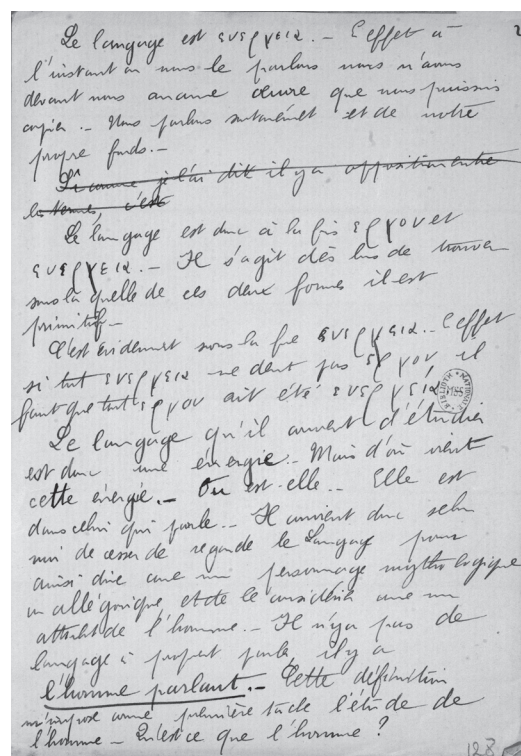 Le langage est ενεργεια. – L'effet à
l'instant où nous le parlons nous n'avons
devant nous aucune œuvre que nous puissions
copier. – Nous parlons instanémet et de notre
propre fonds. –
Si comme je l'ai dit il y a opposition entre
les termes, c'est
Le langage est donc à la fois εργον et
ενεργεια. – Il s'agit dès lors de trouver
sous laquelle de ces deux formes il est
primitif –
C'est évidemmet sous la fme ενεργεια. L'effet
si tut ενεργεια ne devt pas εργον il
faut que tut εργον ait été ενεργεια
Le langage qu'il convient d'étudier
est donc une énergie. – Mais d'où vient
cette énergie. – Où est-elle – Elle est
dans celui qui parle. – Il convient donc selon
moi de cesser de regarder le langage pour
ainsi dire cme un personnage mythologique
ou allégorique et de le considérer cme un
attribut de l'homme. – Il n'y a pas de
langage à propremt parler, il y a
l'homme parlant. – Cette définition
m'impose comme première tâche l'étude de
l'homme – Qu'est-ce que l'homme ?
128